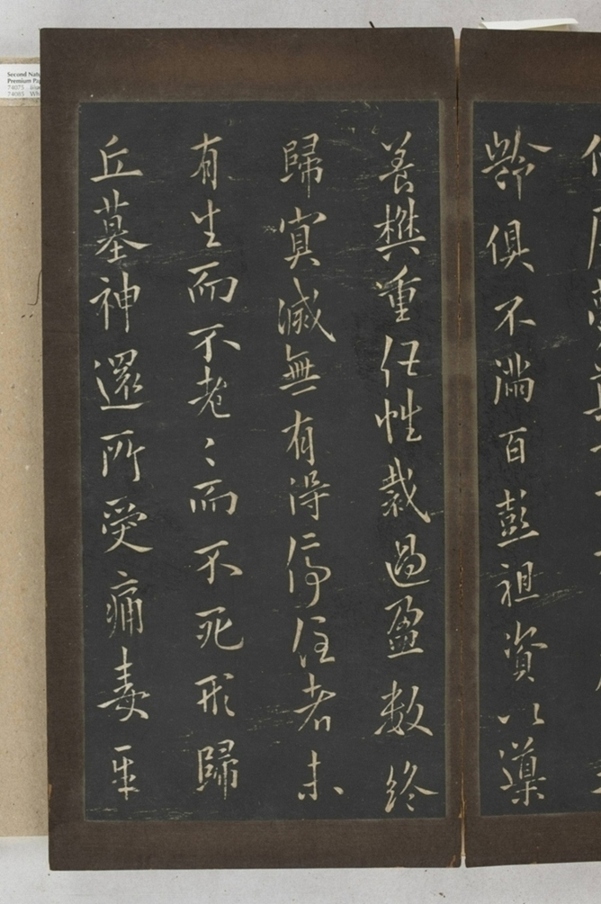 齡俱不滿百彭祖資以導
養樊重任性裁過盈數終
歸冥滅無有得停住者未
有生而不老〻而不死形歸
丘墓神還所受痛毒辛
Second
Premium
74075
74085